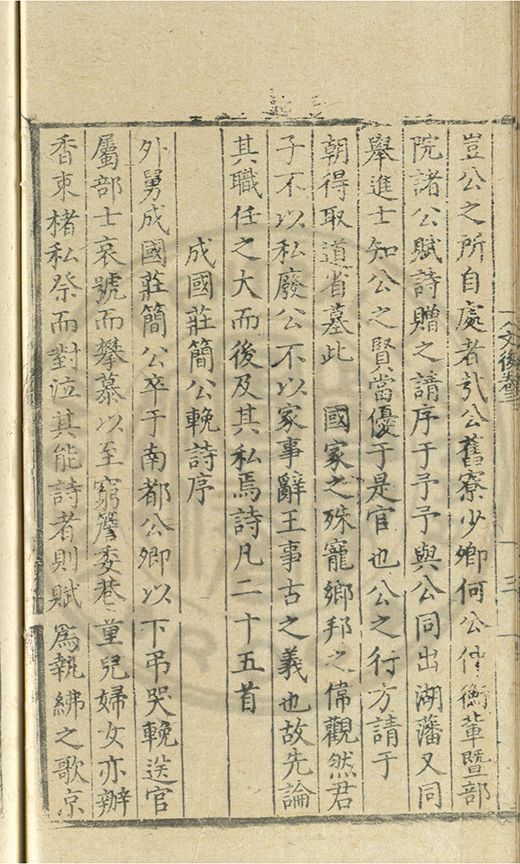 文後卷三
三
豈公之所自處者哉公舊寮少卿何公仲衡輩暨部
院諸公賦詩贈之請序于予予與公同出湖藩又同
舉進士知公之賢當優于是官也公之行方請于
朝得取道省墓此 國家之殊寵鄉邦之偉觀然君
子不以私廢公不以家事辭王事古之義也故先論
其職任之大而後及其私焉詩凡二十五首
成國莊簡公輓詩序
外舅成國莊簡公卒于南都公卿以下弔哭輓送官
屬部士哀號而攀慕以至窮簷委巷童兒婦女亦辦
香束楮私祭而對泣其能詩者則賦為執紼之歌京